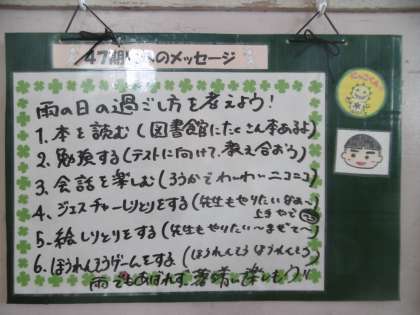 47期生へのメッセージ
雨の日の過ごし方を考えよう!
1. 本を読む(図書館にたくさん本あるよ)
2. 勉強する(テストに向けて、教え合おう)
3. 会話を楽しむ(ろうかでわーわーニコニコ)
4、ジェスチャーしりとりをする(先生もやりたいなぁ〜
5. 絵しりとりをする(先生もやりたい〜まぜて〜)
6. ほうれんそうゲームをする(ほうれんそう ほうれんそう)
雨でもあばれず、落ち着いて楽しもう!!